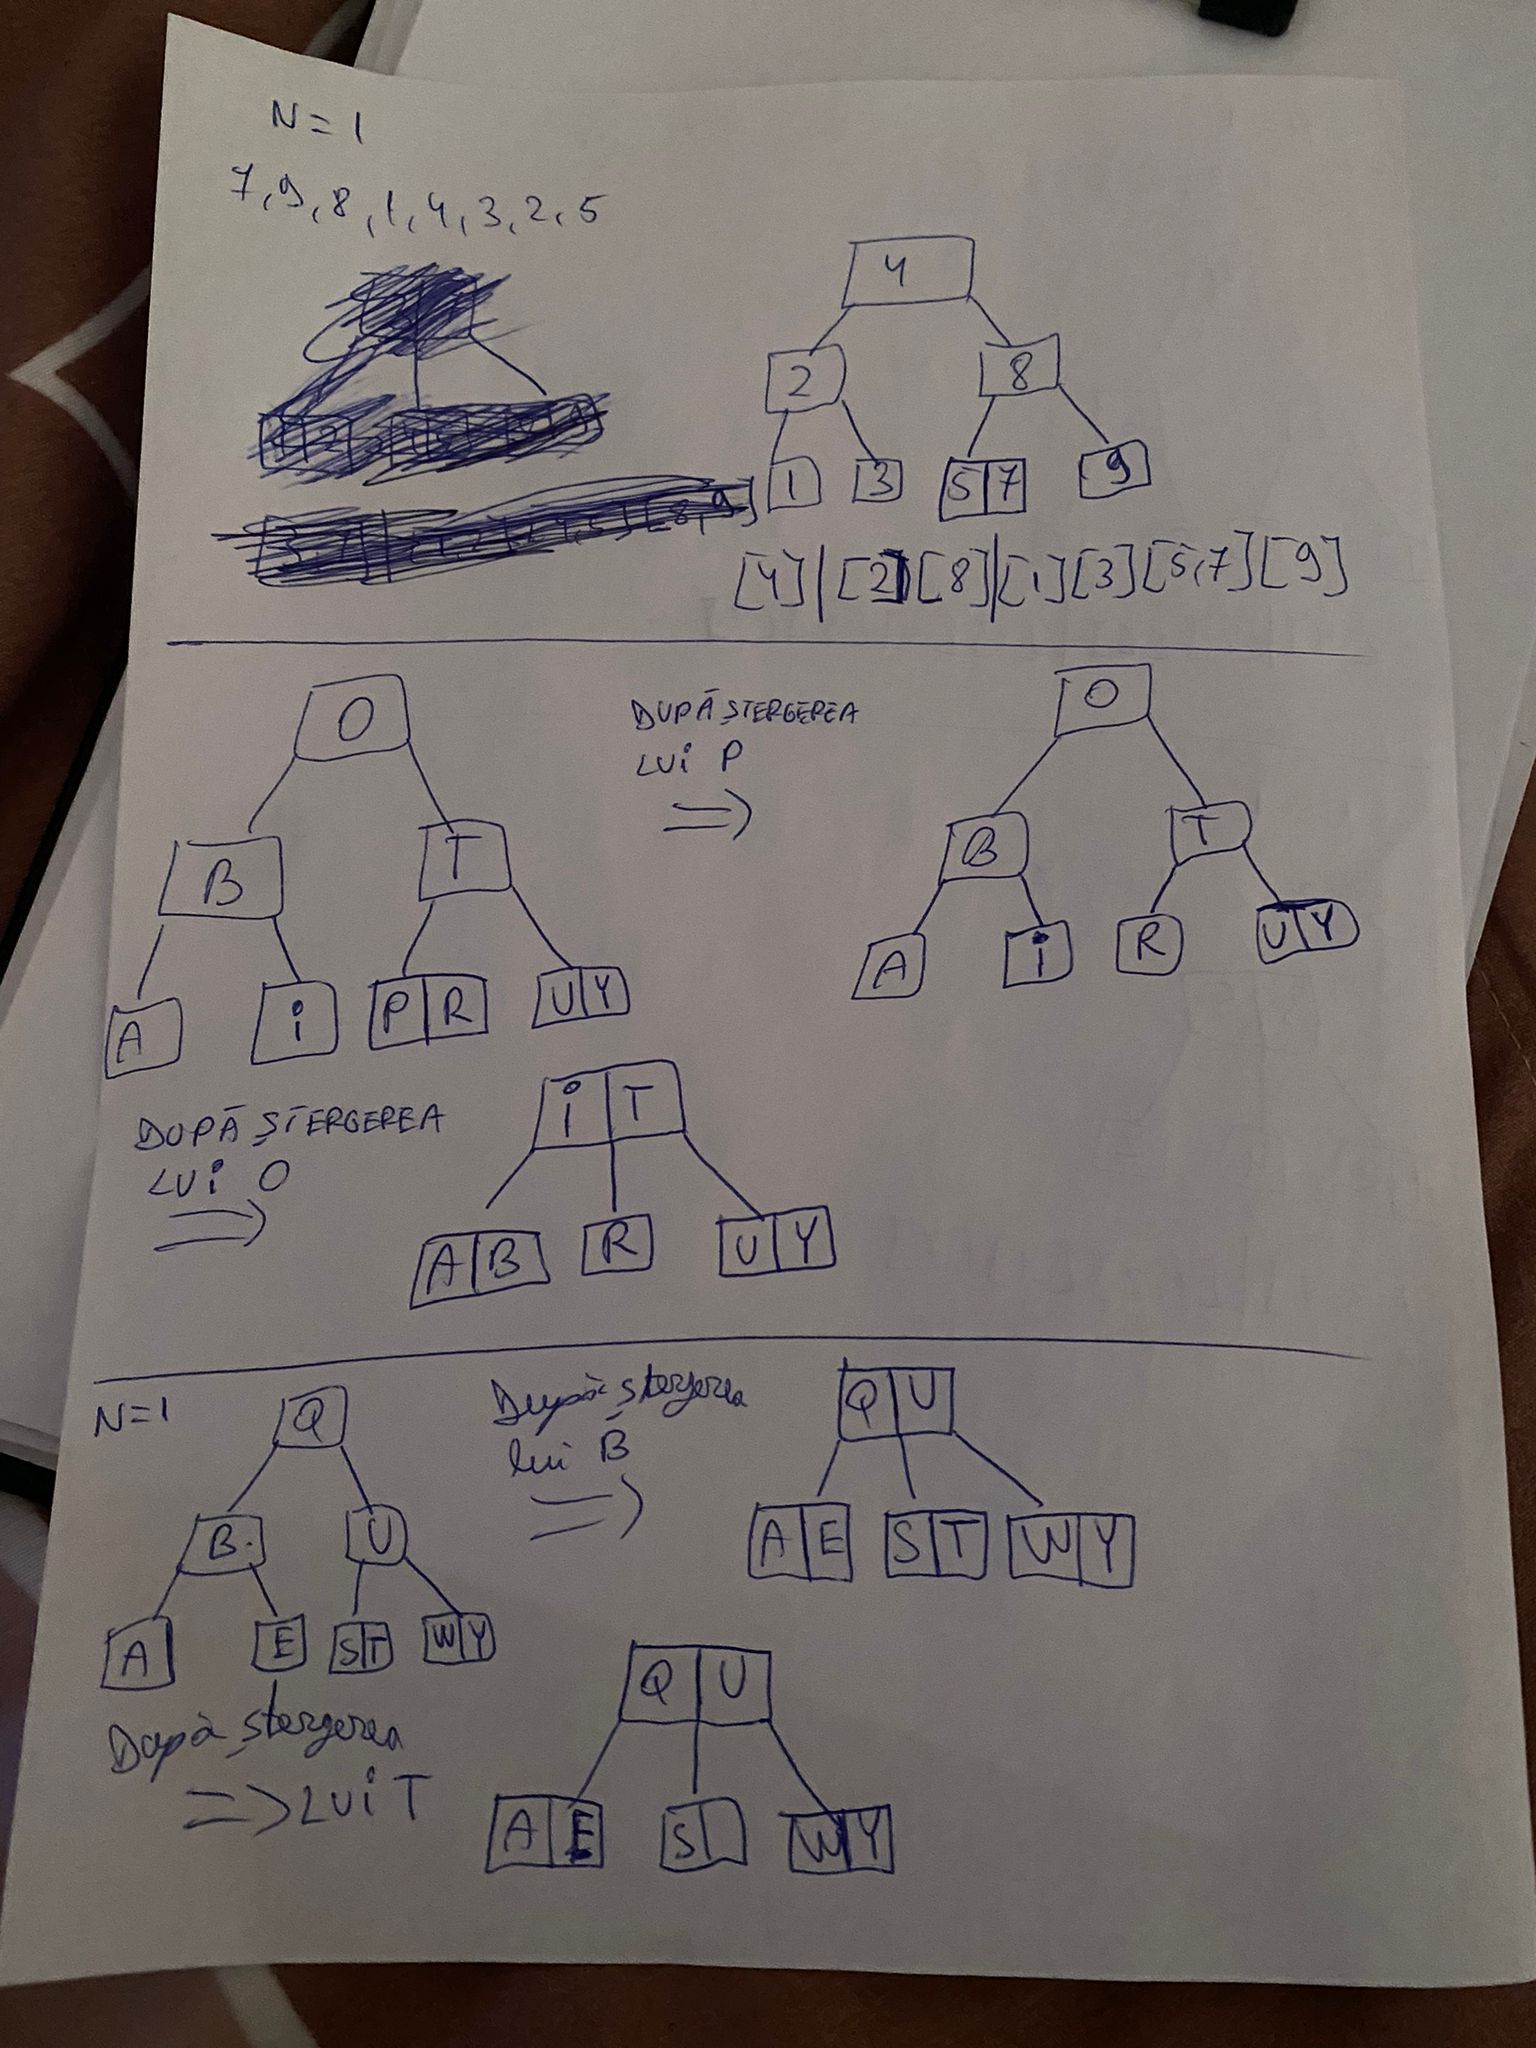 N=1
7, 9, 8, 1, 4, 3, 2, 5
4
2 8
1 3 5 7 9
[4] | [2] [8] | [1] [3] [5,7] [9]
O
B T
A i P R U Y
DUPĂ ȘTERGEREA
LUi P
=>
O
B T
A i R U Y
DUPĂ ȘTERGEREA
LUi O
=>
i T
A B R U Y
N=1
Q
B U
A E S T W Y
După ștergerea
lui B
=>
Q U
A E S T W Y
După ștergerea
=> LUi T
Q U
A E S W Y